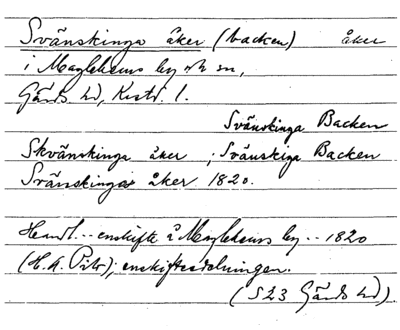 Svänskinga åker (backen) åker
i Maglehems by ok sn,
Gärds hd, Krist. l.
Svänskinga Backen
Skvänskinga åker ; Svänskiga Backen
Svänskinga åker 1820.
Handl... enskifte å Maglehems by .. 1820
(H. A. Pihr); enskiftesdelningen.
(S 23 Gärds hd)